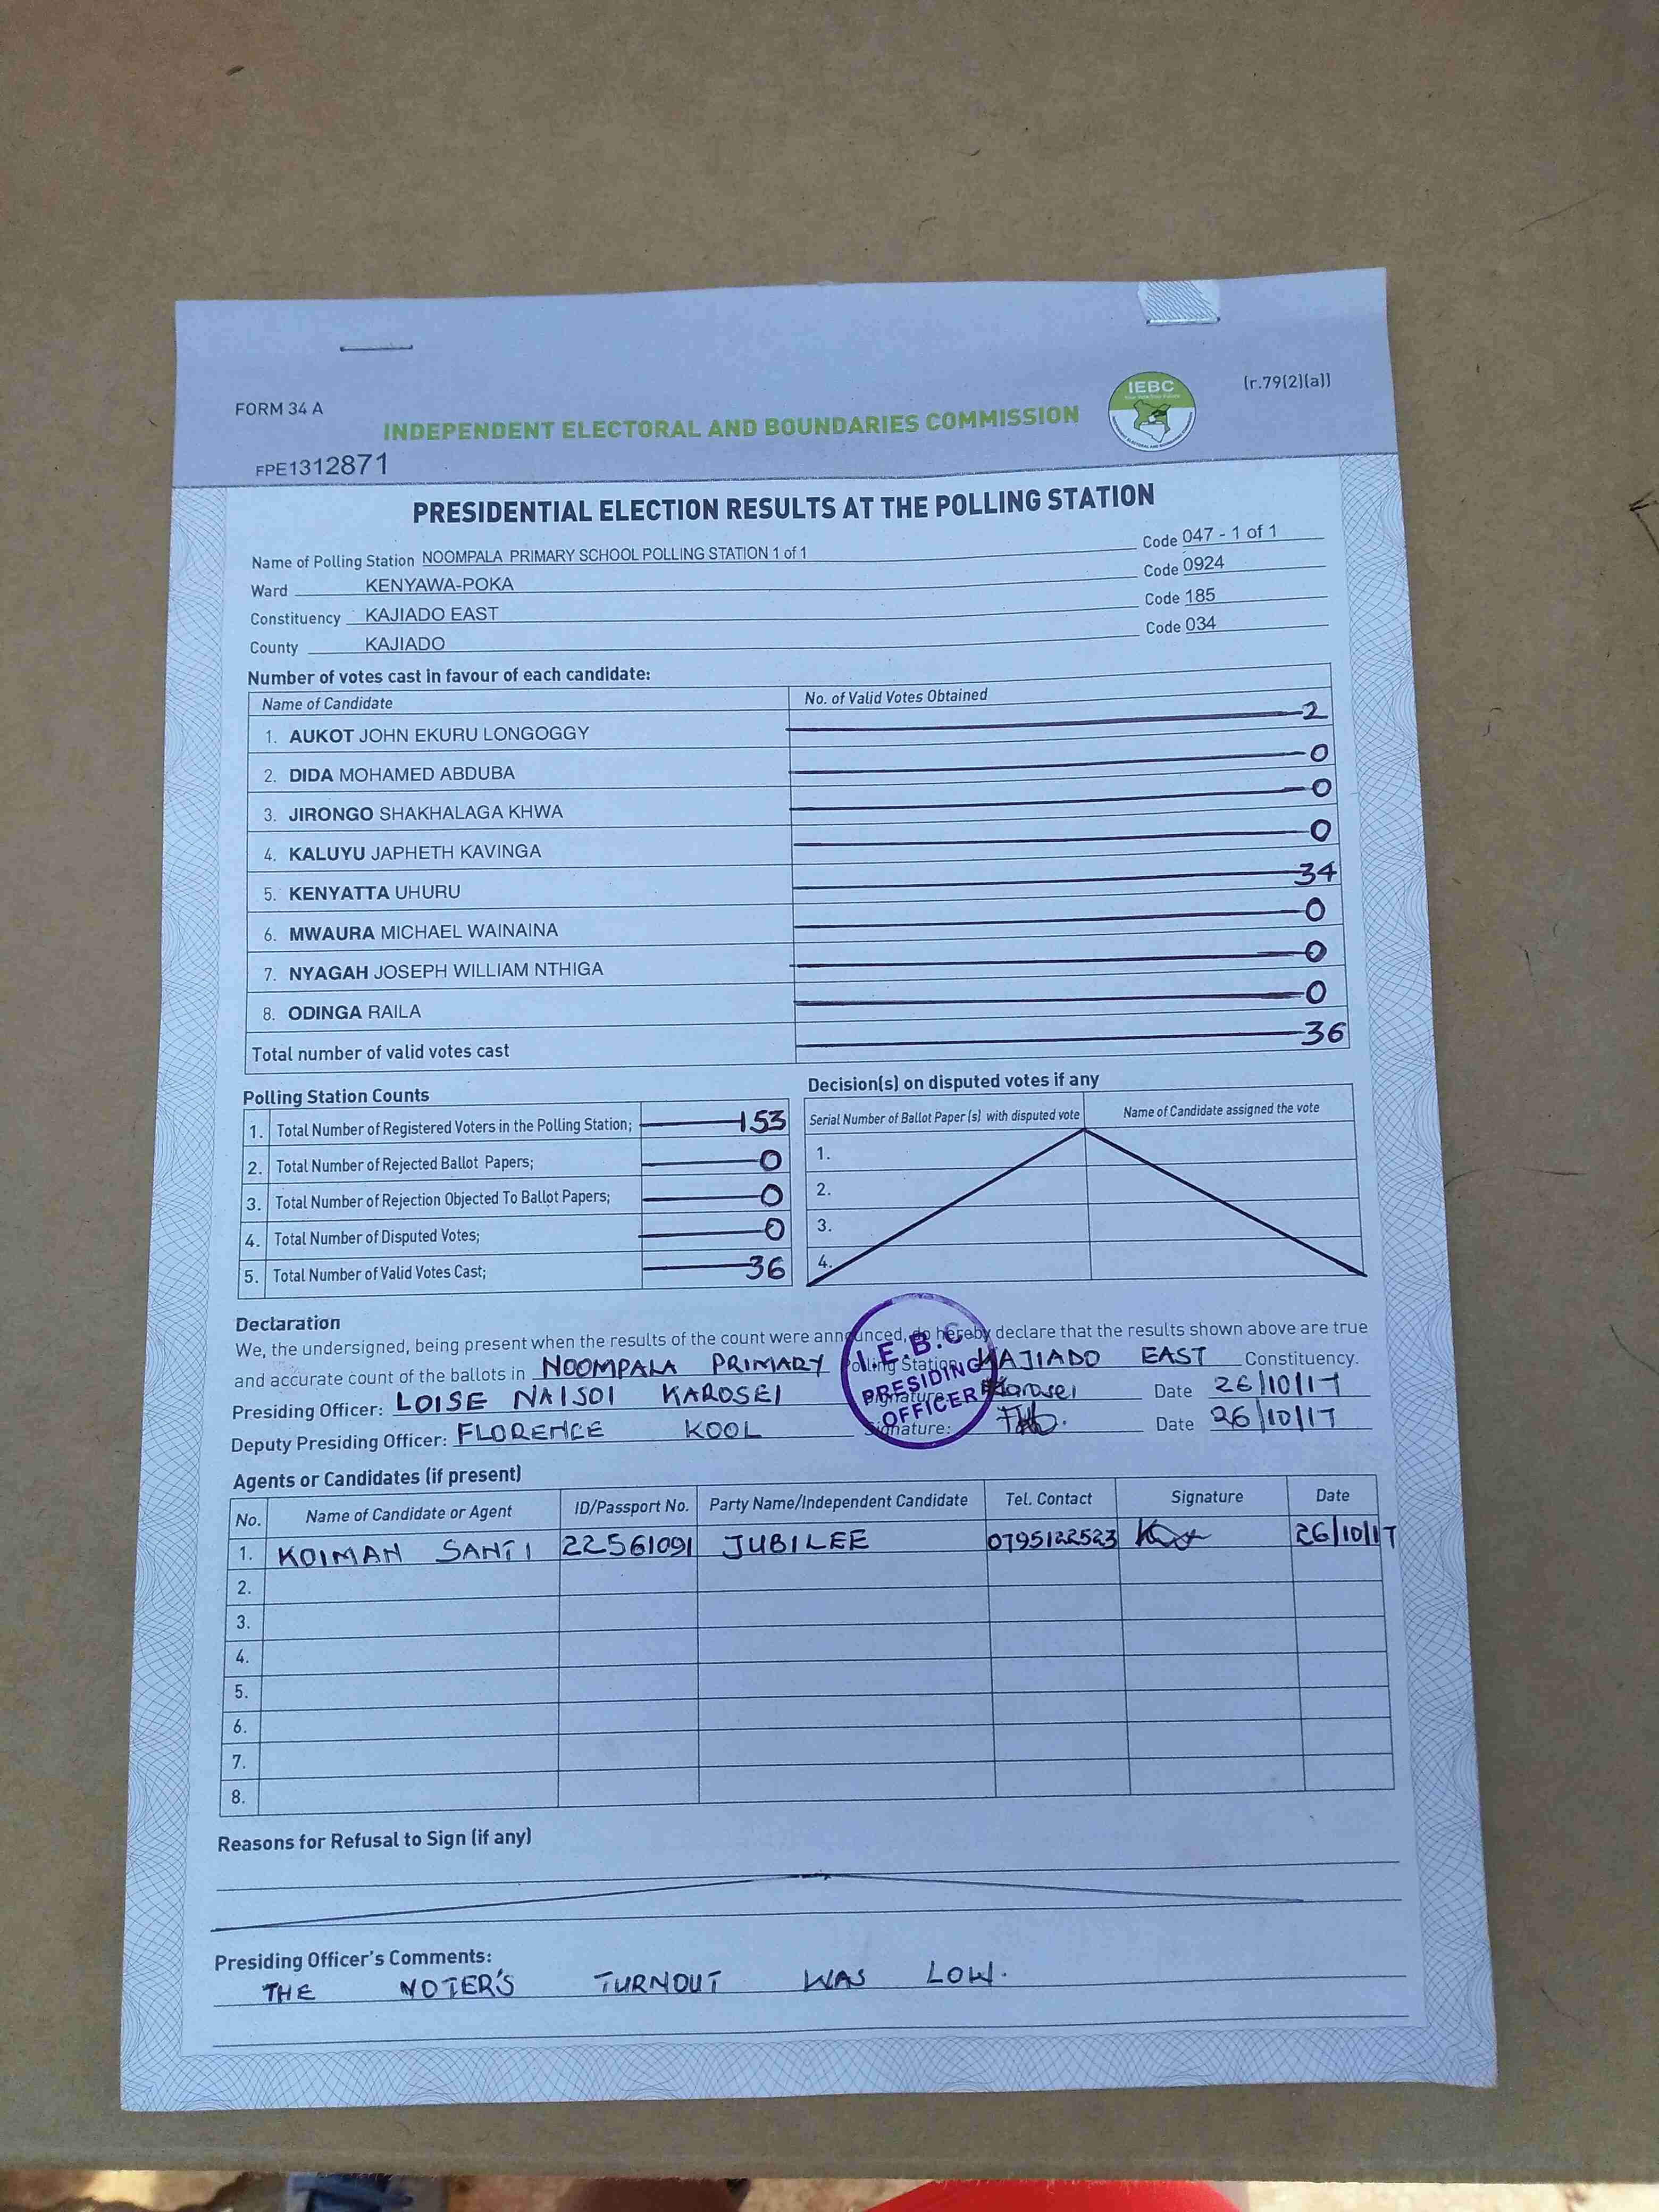 FORM 34 A
(r.79(2)(a))
INDEPENDENT ELECTORAL AND BOUNDARIES COMMISSION
IEBC
FPE1312871
PRESIDENTIAL ELECTION RESULTS AT THE POLLING STATION
Name of Polling Station NOOMPALA PRIMARY SCHOOL POLLING STATION 1 of 1 Code 047 - 1 of 1
Ward KENYAWA-POKA Code 0924
Constituency KAJIADO EAST Code 185
County KAJIADO Code 034
Number of votes cast in favour of each candidate:
Name of Candidate No. of Valid Votes Obtained
1. AUKOT JOHN EKURU LONGOGGY 2
2. DIDA MOHAMED ABDUBA 0
3. JIRONGO SHAKHALAGA KHWA 0
4. KALUYU JAPHETH KAVINGA 0
5. KENYATTA UHURU 34
6. MWAURA MICHAEL WAINAINA 0
7. NYAGAH JOSEPH WILLIAM NTHIGA 0
8. ODINGA RAILA 0
Total number of valid votes cast 36
Polling Station Counts
1. Total Number of Registered Voters in the Polling Station; 153
2. Total Number of Rejected Ballot Papers; 0
3. Total Number of Rejection Objected To Ballot Papers; 0
4. Total Number of Disputed Votes; 0
5. Total Number of Valid Votes Cast; 36
Decision(s) on disputed votes if any
Serial Number of Ballot Paper (s) with disputed vote Name of Candidate assigned the vote
1.
2.
3.
4.
Declaration
We, the undersigned, being present when the results of the count were announced, do hereby declare that the results shown above are true
and accurate count of the ballots in NOOMPALA PRIMARY Polling Station KAJIADO EAST Constituency.
Presiding Officer: LOISE NAISOI KAROSEI Signature: Karosei Date 26/10/17
Deputy Presiding Officer: FLORENCE KOOL Signature: Date 26/10/17
I.E.B.C
PRESIDING
OFFICER
Agents or Candidates (if present)
No. Name of Candidate or Agent ID/Passport No. Party Name/Independent Candidate Tel. Contact Signature Date
1. KOIMAN SANTI 22561091 JUBILEE 0795122523 26/10/17
2.
3.
4.
5.
6.
7.
8.
Reasons for Refusal to Sign (if any)
Presiding Officer's Comments:
THE VOTER'S TURNOUT WAS LOW.